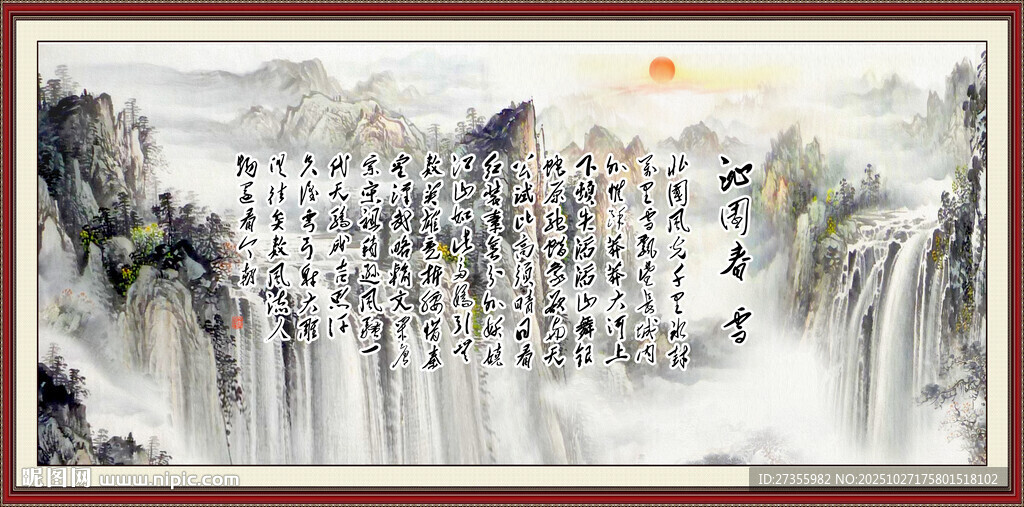 沁園春 雪
北國風光千里冰封
万里雪飄望長城内
外惟餘莽莽大河上
下頓失滔滔山舞银
蛇原馳蜡象欲與天
公试比高須晴日看
红装素裹分外妖嬈
江山如此多嬌引無
數英雄竞折腰惜秦
皇漢武略輸文采唐
宗宋祖稍遜風騷一
代天驕成吉思汗
只識弯弓射大雕
俱往矣数風流人
物還看今朝
昵图网 www.nipic.com
ID:27355982 NO:20251027175801518102